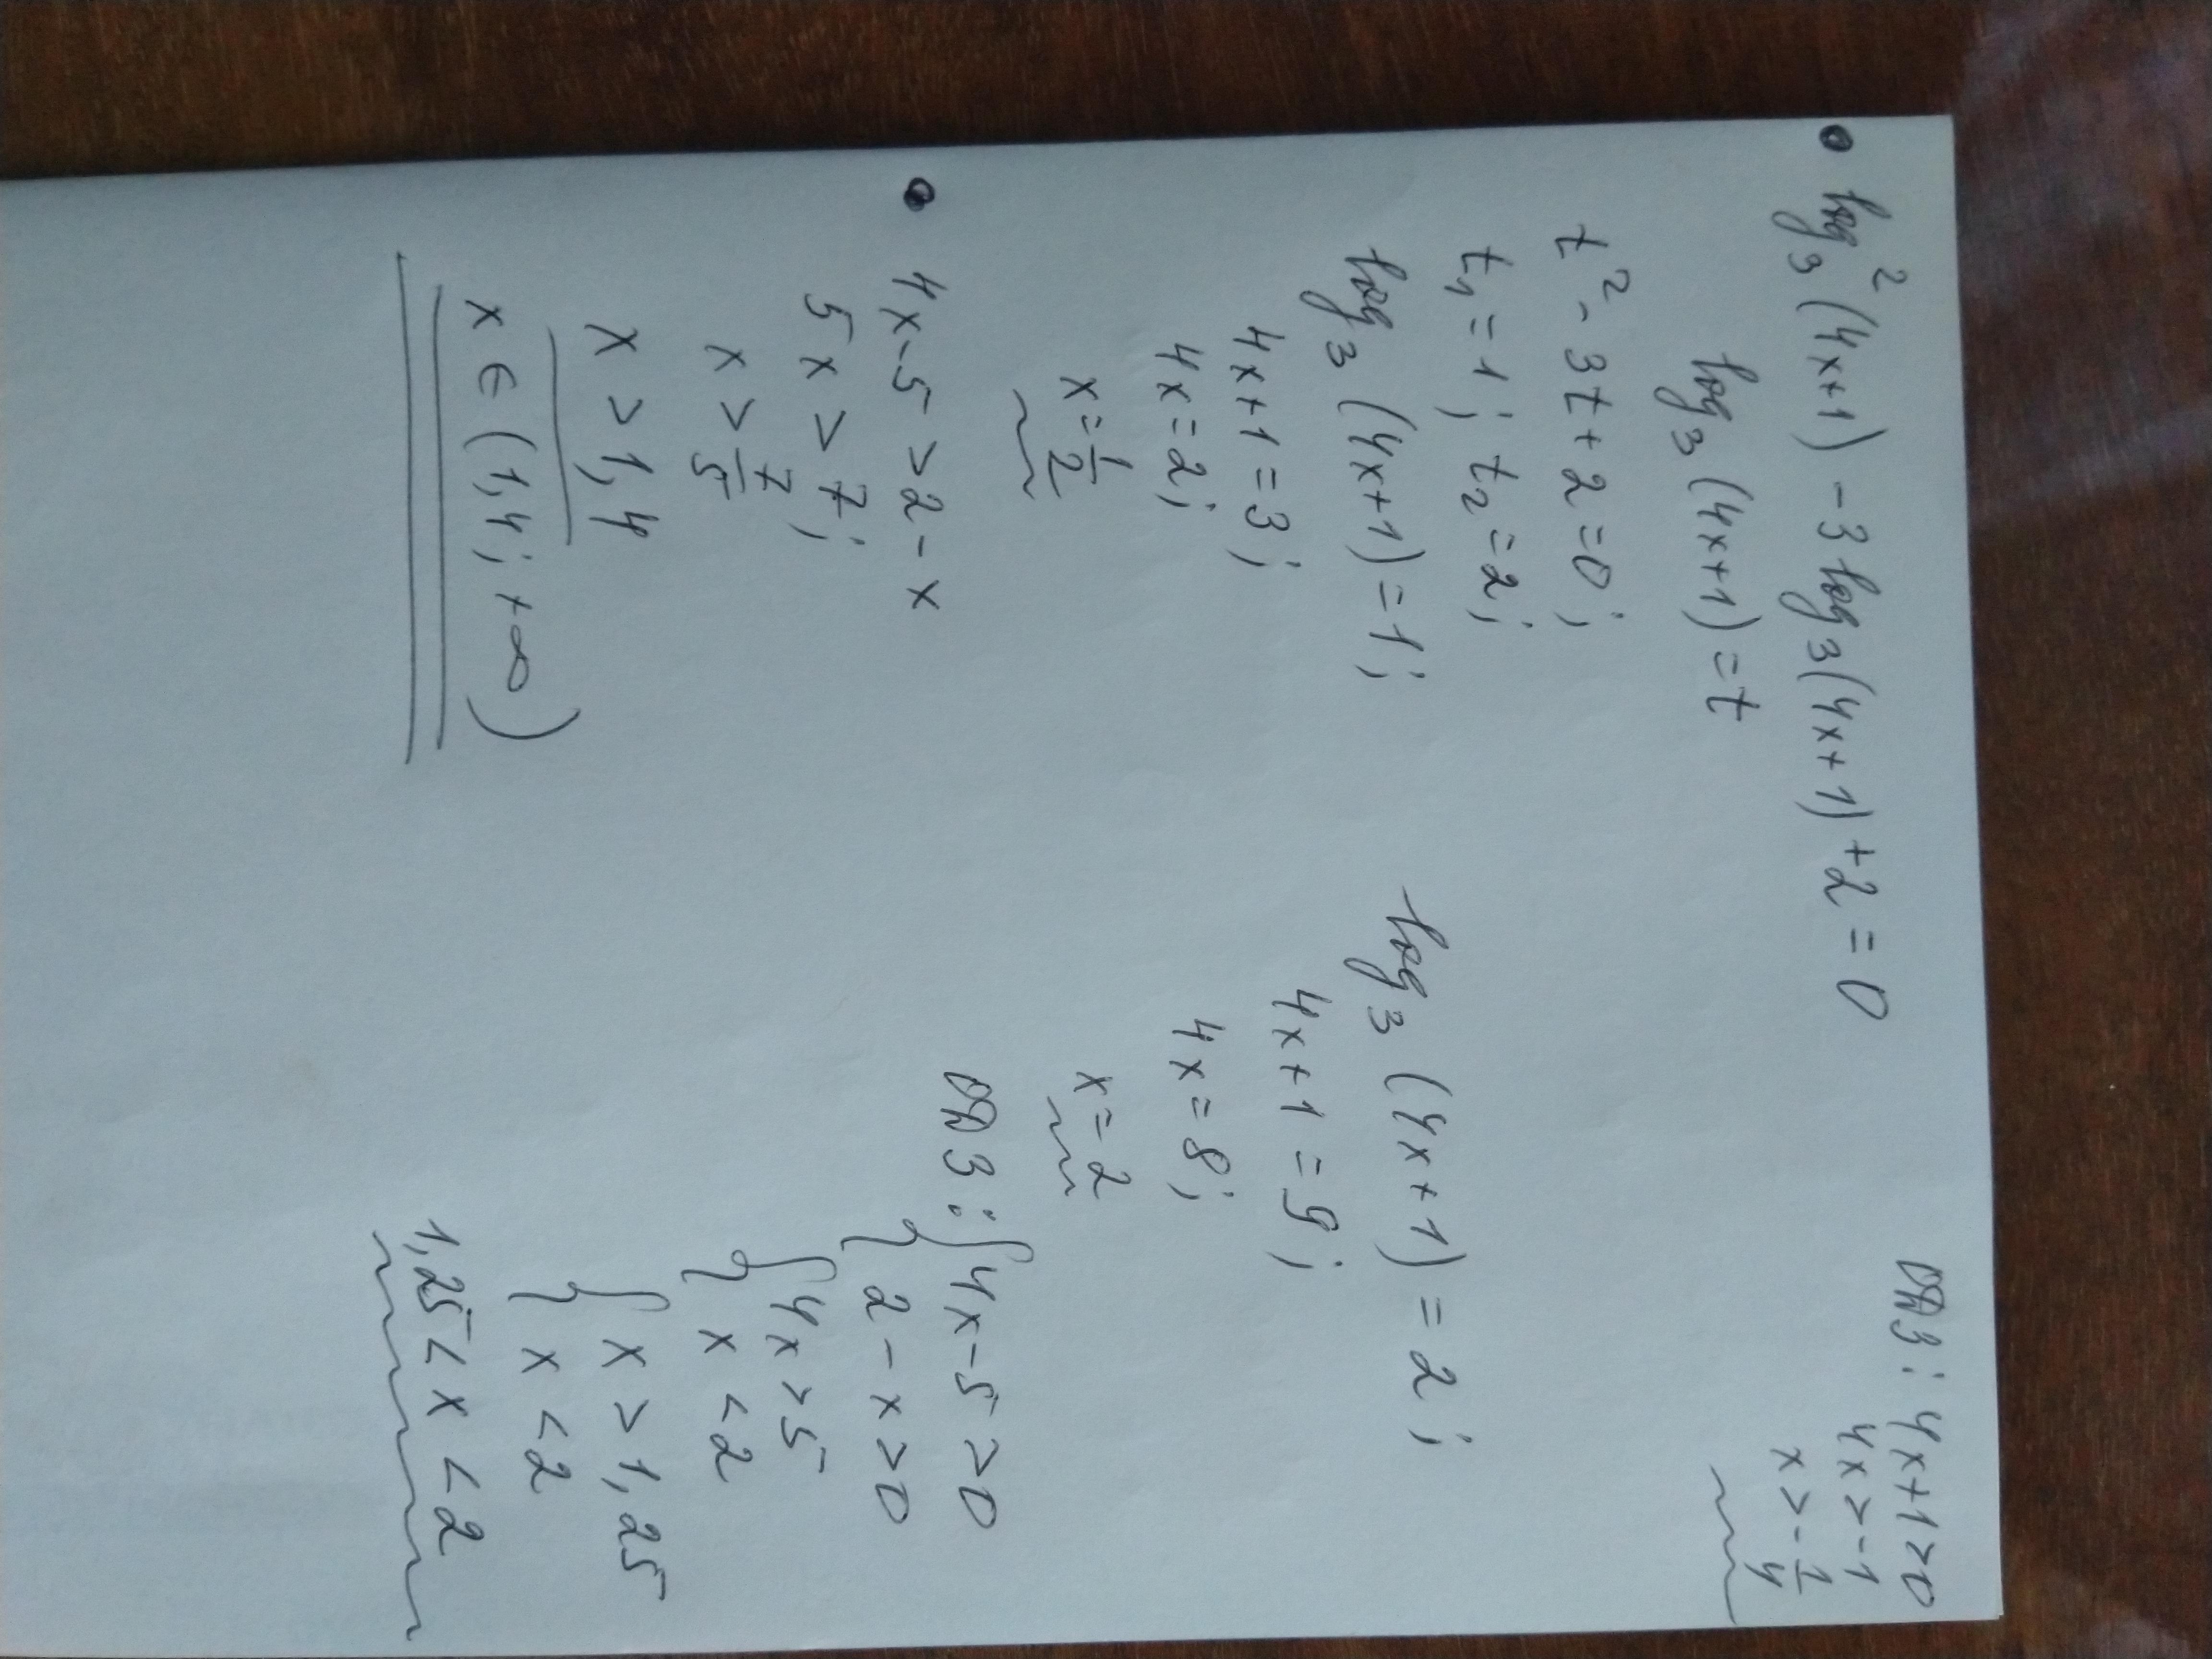 • log₃²(4x+1) - 3log₃(4x+1) + 2 = 0
ОДЗ: 4x+1>0
4x > -1
x > -1/4
log₃(4x+1) = t
t² - 3t + 2 = 0;
t₁ = 1; t₂ = 2;
log₃(4x+1) = 1;
4x+1 = 3;
4x = 2;
x = 1/2
log₃(4x+1) = 2;
4x+1 = 9;
4x = 8;
x = 2
• 4x-5 > 2-x
5x > 7;
x > 7/5
x > 1,4
x ∈ (1,4; +∞)
ОДЗ: { 4x-5 > 0
2-x > 0
{ 4x > 5
x < 2
{ x > 1,25
x < 2
1,25 < x < 2